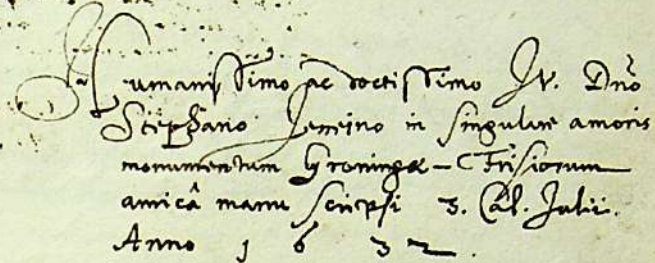 Humanissimo ac doctissimo Jv. Dno
Stephano in singulare amoris
monumentum Groningæ-Frisiorum
amicâ manu scripsi 3. Cal. Julii.
Anno 1632.